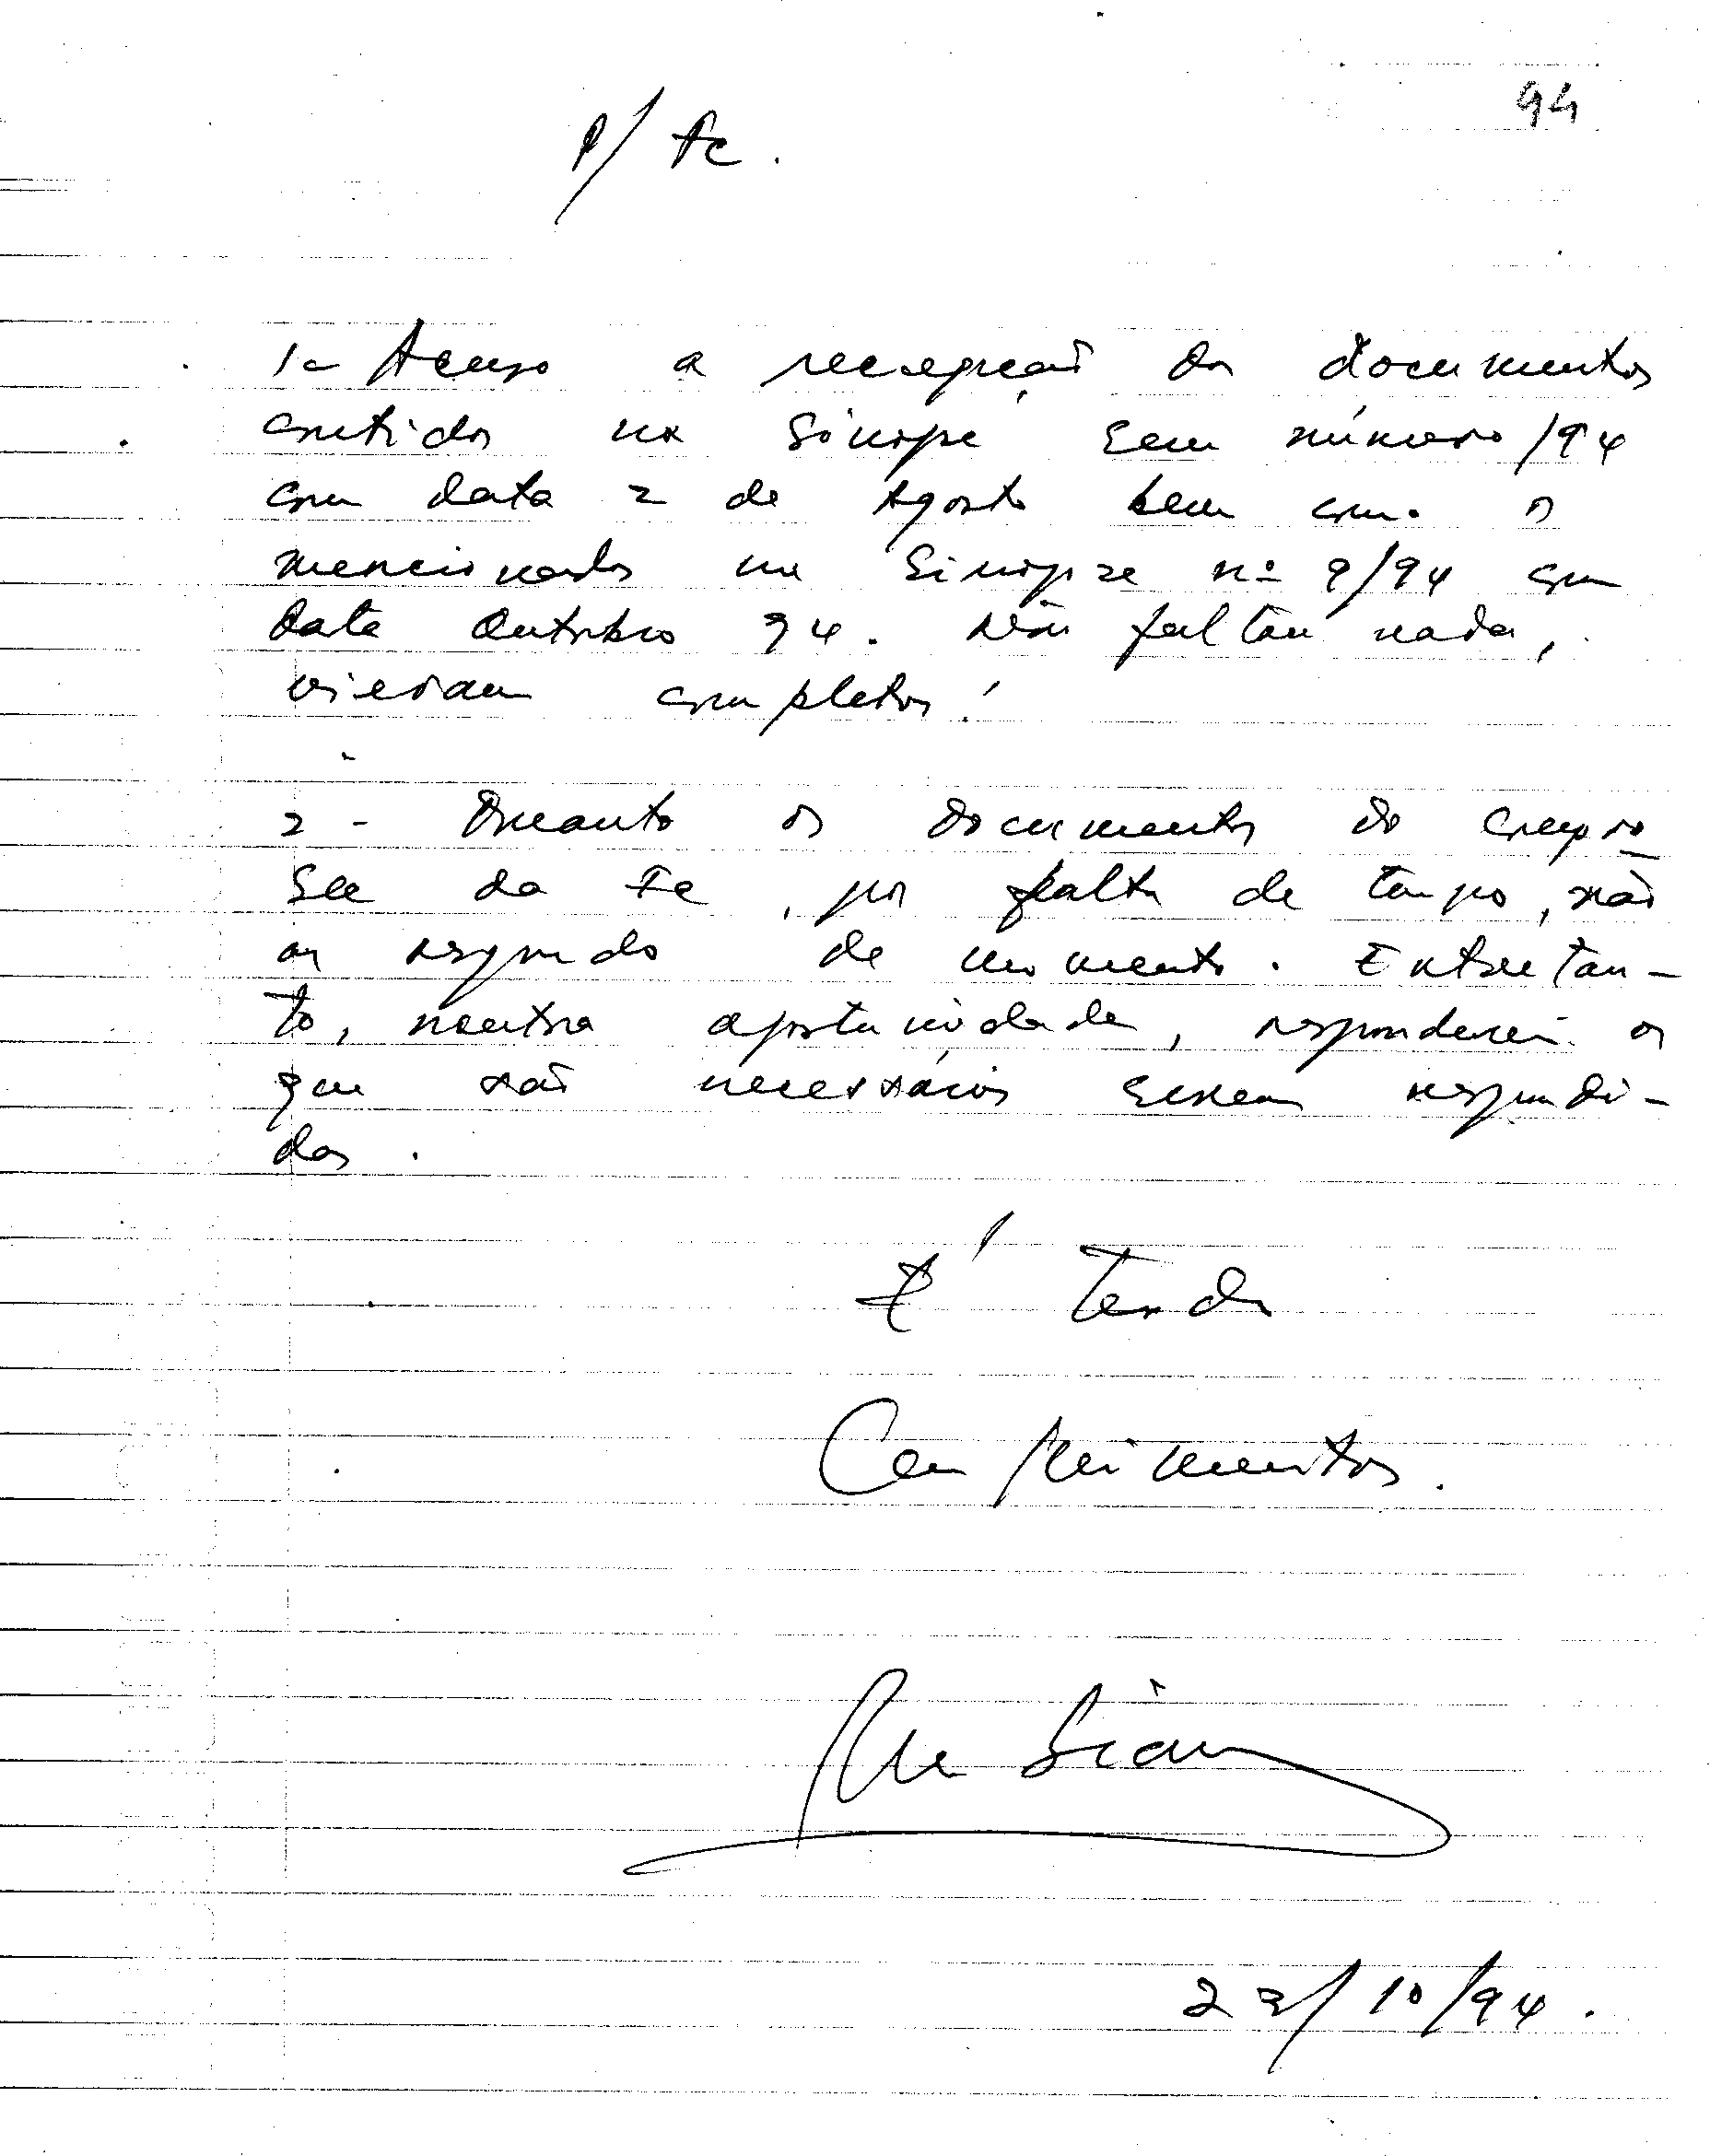 94
P/ Fc.
1- Acuso a recepção dos documentos
contidos na Sinopse sem número/94
com data 2 de Agosto bem como os
mencionados na Sinopse nº 9/94 com
data Outubro 94. Não faltou nada,
vieram completos!
2 - Quanto os documentos do
da Fc, por falta de tempo, não
os respondo de momento. Entretan-
to, noutra oportunidade, responderei os
que são necessários serem respondi-
dos.
É tudo
Cumprimentos.
22/10/94.